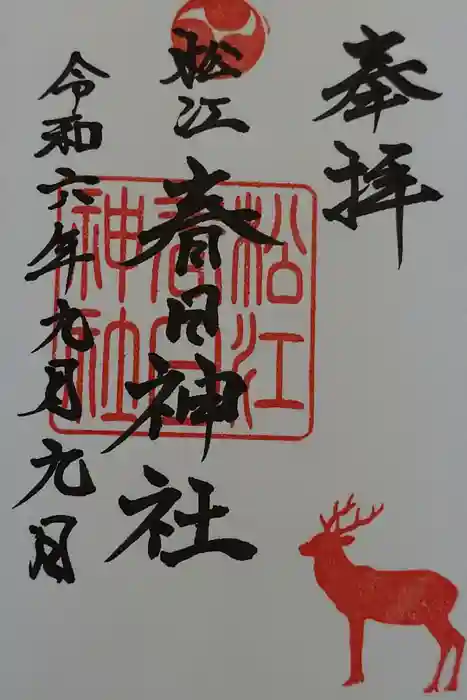 奉拝
松江
春日神社
令和六年九月九日
松江
春日
神社